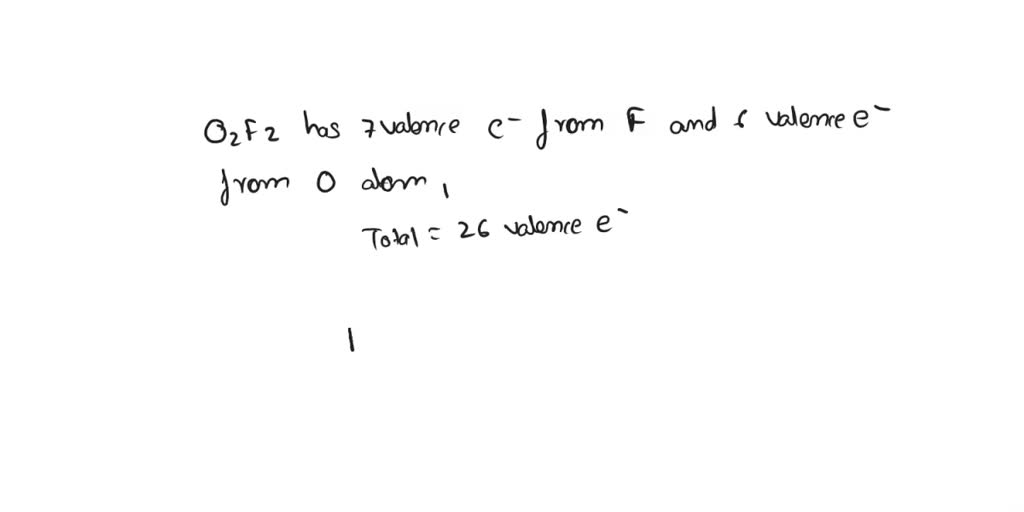 O2F2 has 7 valence e- from F and 6 valence e-
from O atom,
Total = 26 valence e-